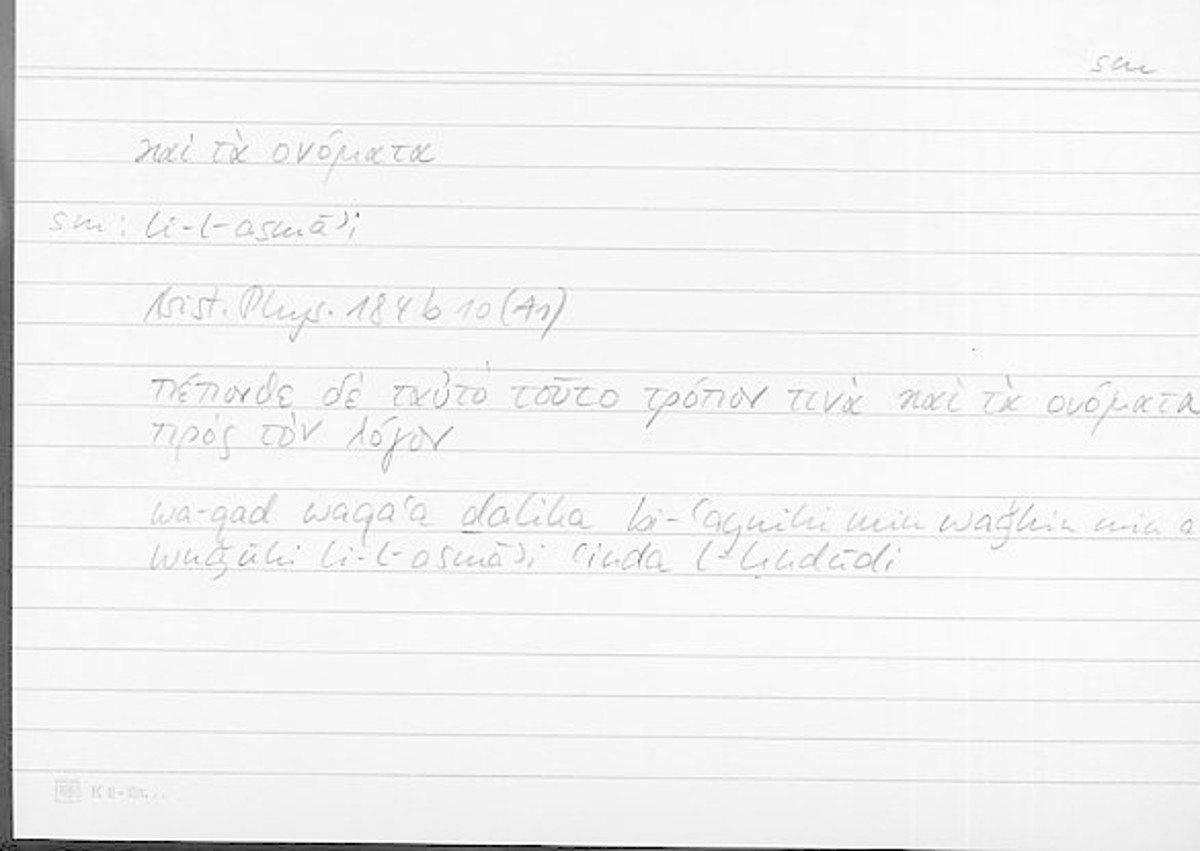 sm
καὶ τὰ ονόματα
sm: li-l-asmāʾi
Arist. Phys. 184 b 10 (A1)
πέπονθε δὲ ταὐτὸ τοῦτο τρόπον τινὰ καὶ τὰ ονόματα
πρὸς τὸν λόγον
wa-qad waqaʿa ḏalika bi-ʿaynihi min waǧhin min
wuǧūhi li-l-asmāʾi ʿinda l-ḥudūdi